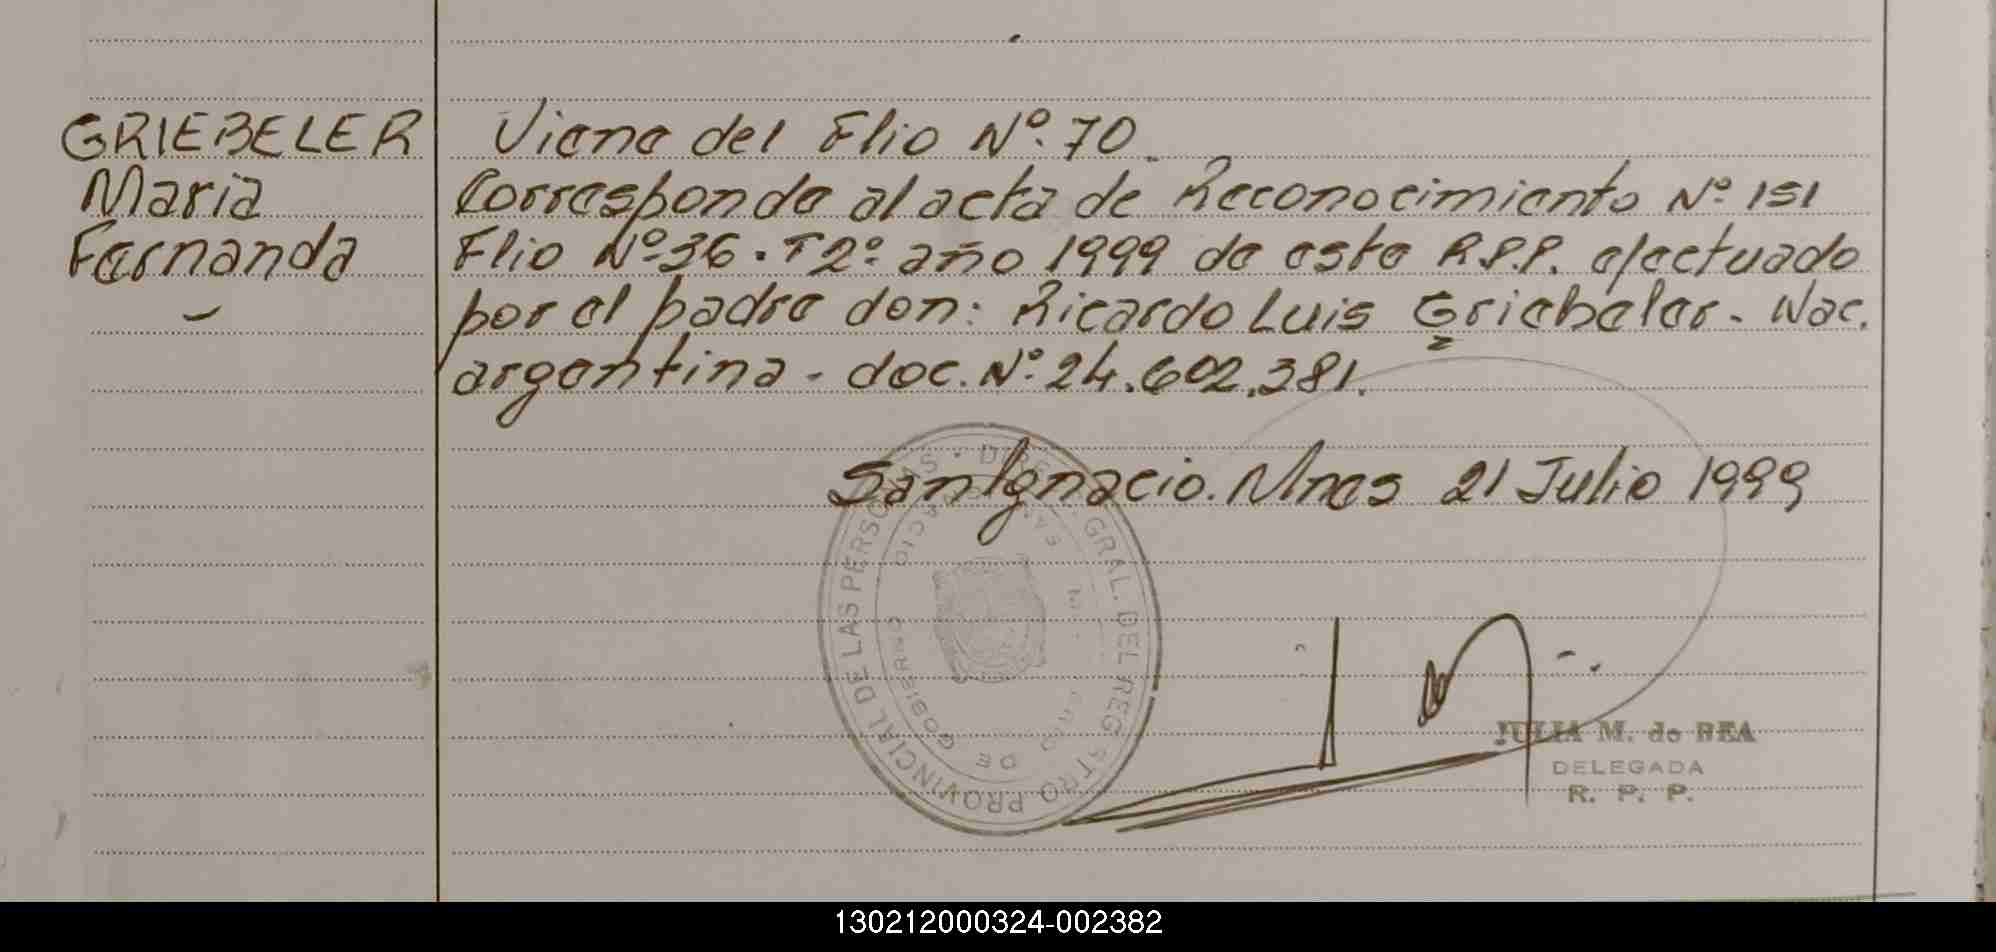 GRIEBELER
Maria
Fernanda
-
Viene del Flio Nº. 70.
Corresponde al acta de Reconocimiento Nº 151
Flio Nº 36. T2º año 1999 de este R.P.P. efectuado
por el padre don: Ricardo Luis Griebeler. Nac.
argentina. doc. Nº 24.602.381.
San Ignacio. Mnes 21 Julio 1999
DIREC. GRAL. DEL REGISTRO PROVINCIAL DE LAS PERSONAS
DE GOBIERNO
JULIA M. de BEA
DELEGADA
R. P. P.
130212000324-002382